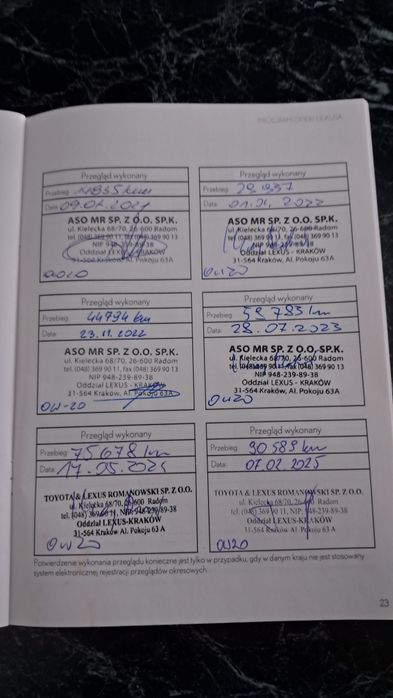 PROGRAM OPIEKI LEXUSA
Przegląd wykonany
Przebieg: 14835 km
Data: 09.02.2021
ASO MR SP. Z O.O. SP.K.
ul. Kielecka 68/70, 26-600 Radom
tel. (048) 369 90 11, fax (048) 369 90 13
NIP 948-239-89-38
Oddział LEXUS - KRAKÓW
31-564 Kraków, Al. Pokoju 63A
0W20
Przegląd wykonany
Przebieg: 29 337
Data: 01.2022
ASO MR SP. Z O.O. SP.K.
ul. Kielecka 68/70, 26-600 Radom
tel. (048) 369 90 11, fax (048) 369 90 13
NIP 948-239-89-38
Oddział LEXUS - KRAKÓW
31-564 Kraków, Al. Pokoju 63A
0W20
Przegląd wykonany
Przebieg: 44794 km
Data: 23.11.2022
ASO MR SP. Z O.O. SP.K.
ul. Kielecka 68/70, 26-600 Radom
tel. (048) 369 90 11, fax (048) 369 90 13
NIP 948-239-89-38
Oddział LEXUS - KRAKÓW
31-564 Kraków, Al. Pokoju 63A
0W-20
Przegląd wykonany
Przebieg: 58 785 km
Data: 28.07.2023
ASO MR SP. Z O.O. SP.K.
ul. Kielecka 68/70, 26-600 Radom
tel. (048) 369 90 11, fax (048) 369 90 13
NIP 948-239-89-38
Oddział LEXUS - KRAKÓW
31-564 Kraków, Al. Pokoju 63A
0W20
Przegląd wykonany
Przebieg: 75678 km
Data: 17.05.2024
TOYOTA & LEXUS ROMANOWSKI SP. Z O.O.
ul. Kielecka 68/70, 26-600 Radom
tel. (048) 369 90 11, NIP: 948-239-89-38
Oddział LEXUS-KRAKÓW
31-564 Kraków, Al. Pokoju 63A
0W20
Przegląd wykonany
Przebieg: 90585 km
Data: 07.02.2025
TOYOTA & LEXUS ROMANOWSKI SP. Z O.O.
ul. Kielecka 68/70, 26-600 Radom
tel. (048) 369 90 11, NIP 948-239-89-38
Oddział LEXUS-KRAKÓW
31-564 Kraków, Al. Pokoju 63A
0W20
Potwierdzenie wykonania przeglądu konieczne jest tylko w przypadku, gdy w danym kraju nie jest stosowany
system elektronicznej rejestracji przeglądów okresowych.
23